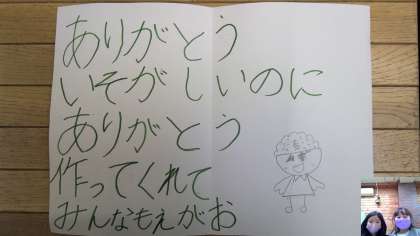 ありがとう
いそがしいのに
ありがとう
作ってくれて
みんなもえがお